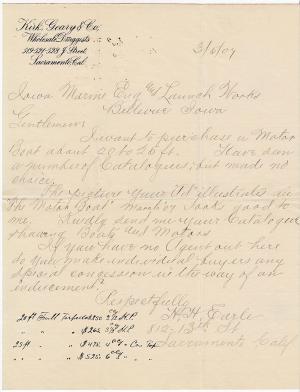 Kirk, Geary & Co.
Wholesale Druggists
519-521-523 J Street,
Sacramento, Cal.
3/6/07
Iowa Marine Eng and Launch Works
Bellevue Iowa
Gentlemen:
I want to purchase a Motor
Boat about 20 to 26 ft. Have seen
a number of Catalogues; but made no
choice.
The picture your Ad illustrates in
The Motor Boat looks good to
me. Kindly send me your Catalogue
showing Boats and Motors
If you have no Agent out here
do you make individual buyers any
special concession in the way of an
inducement?
Respectfully
H. H. Earle
812-13th St
Sacramento Calif
20 ft Full
25 ft